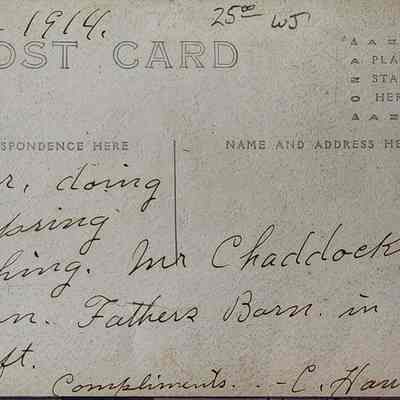 1914. 25⁰⁰ WJ
OST CARD
AZO
PLA
STA
HER
SPONDENCE HERE
NAME AND ADDRESS HE
r, doing
oring
hing. Mr Chaddock
n. Fathers Barn. in
ft.
Compliments. - C. Haw